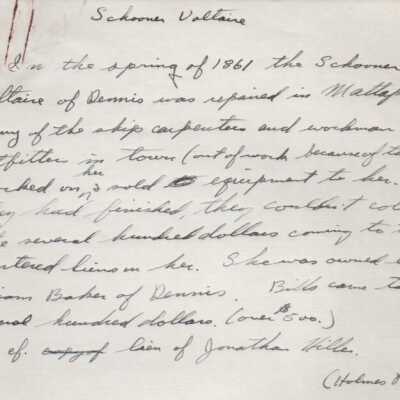 Schooner Voltaire
In the spring of 1861 the Schooner
ltaire of Dennis was repaired in Mattap
ny of the ship carpenters and workman
tfitter in town (out of work because of t
orked on her & sold equipment to her.
ey had finished, they couldn't col
e several hundred dollars coming to
tered liens on her. She was owned
iam Baker of Dennis. Bills came to
eral hundred dollars. (over $500.)
cf. copy of lien of Jonathan Hiller.
(Holmes